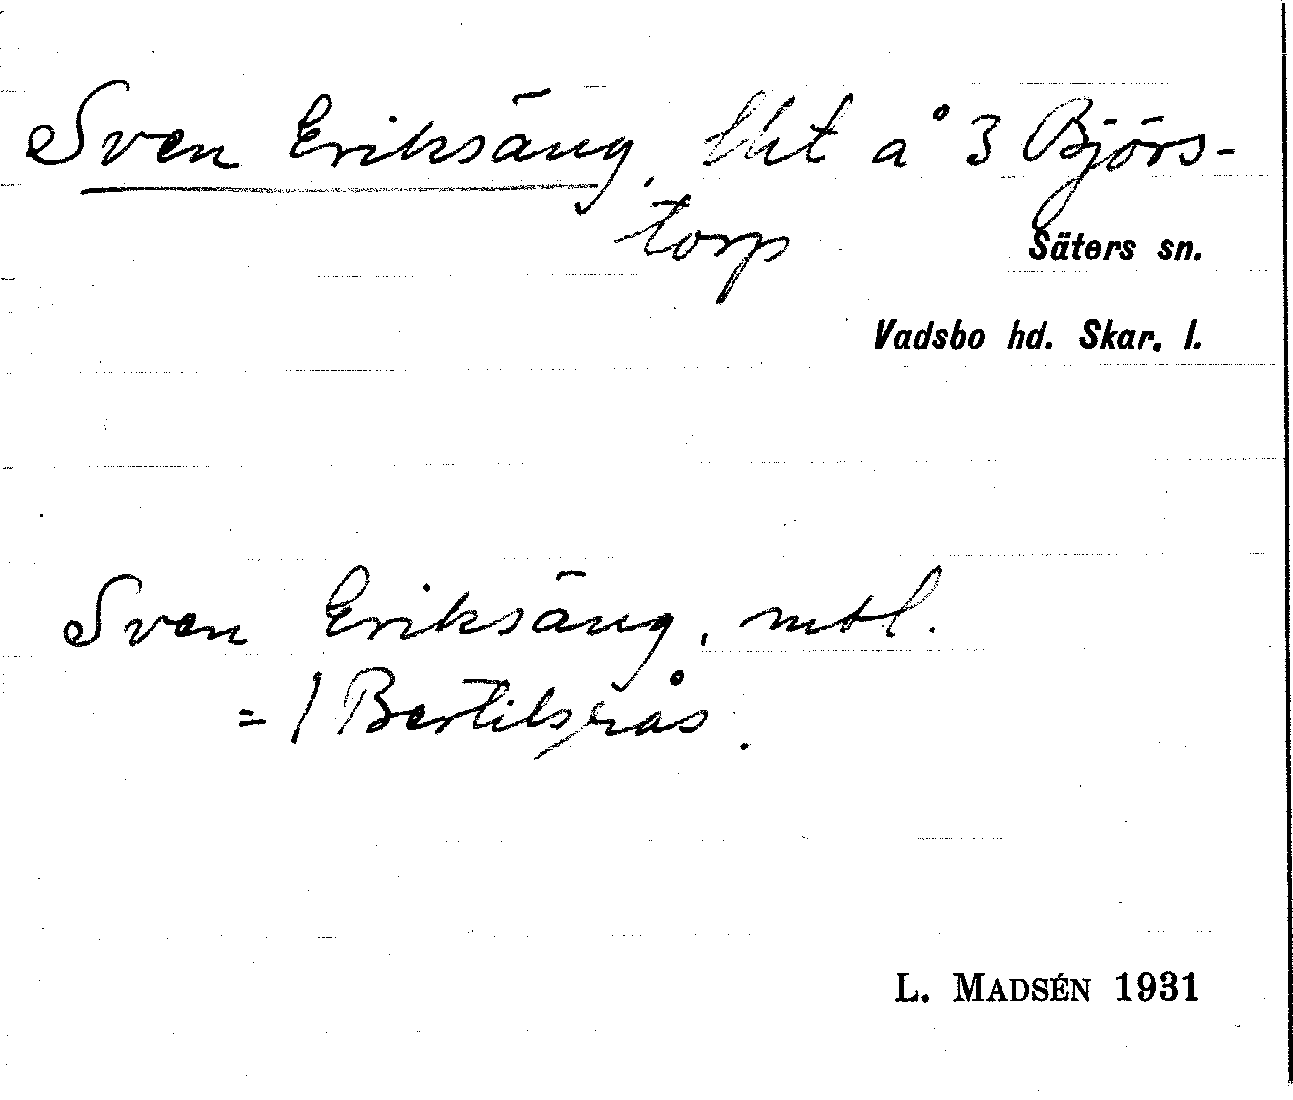 Sven Eriksäng, lht å 3 Björs-
torp
Säters sn.
Vadsbo hd. Skar. l.
Sven Eriksäng, mtl.
= 1 Bertilsrås.
L. MADSÉN 1931